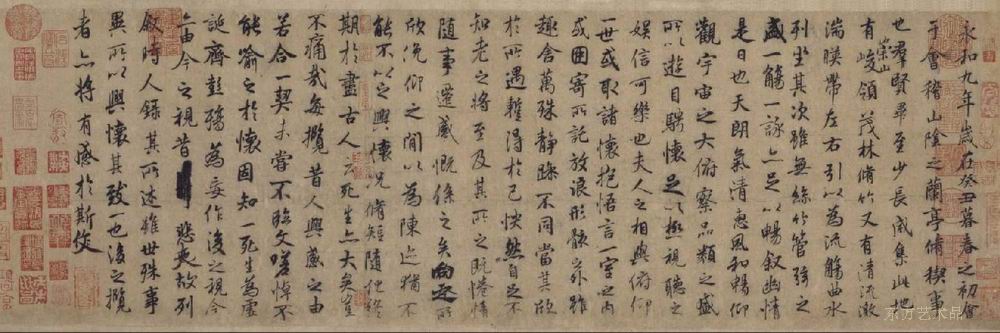 永和九年歲在癸丑暮春之初會
于會稽山陰之蘭亭脩稧事
也羣賢畢至少長咸集此地
有崇山峻領茂林脩竹又有清流激
湍暎帶左右引以為流觴曲水
列坐其次雖無絲竹管弦之
盛一觴一詠亦足以暢敘幽情
是日也天朗氣清惠風和暢仰
觀宇宙之大俯察品類之盛
所以遊目騁懷足以極視聽之
娛信可樂也夫人之相與俯仰
一世或取諸懷抱悟言一室之內
或因寄所託放浪形骸之外雖
趣舍萬殊靜躁不同當其欣
於所遇蹔得於己怏然自足不
知老之將至及其所之既惓情
隨事遷感慨係之矣向之所
欣俛仰之閒以為陳迹猶不
能不以之興懷況脩短隨化終
期於盡古人云死生亦大矣豈
不痛哉每攬昔人興感之由
若合一契未嘗不臨文嗟悼不
能喻之於懷固知一死生為虛
誕齊彭殤為妄作後之視今
亦由今之視昔悲夫故列
敘時人錄其所述雖世殊事
異所以興懷其致一也後之攬
者亦將有感於斯文
东方艺术品